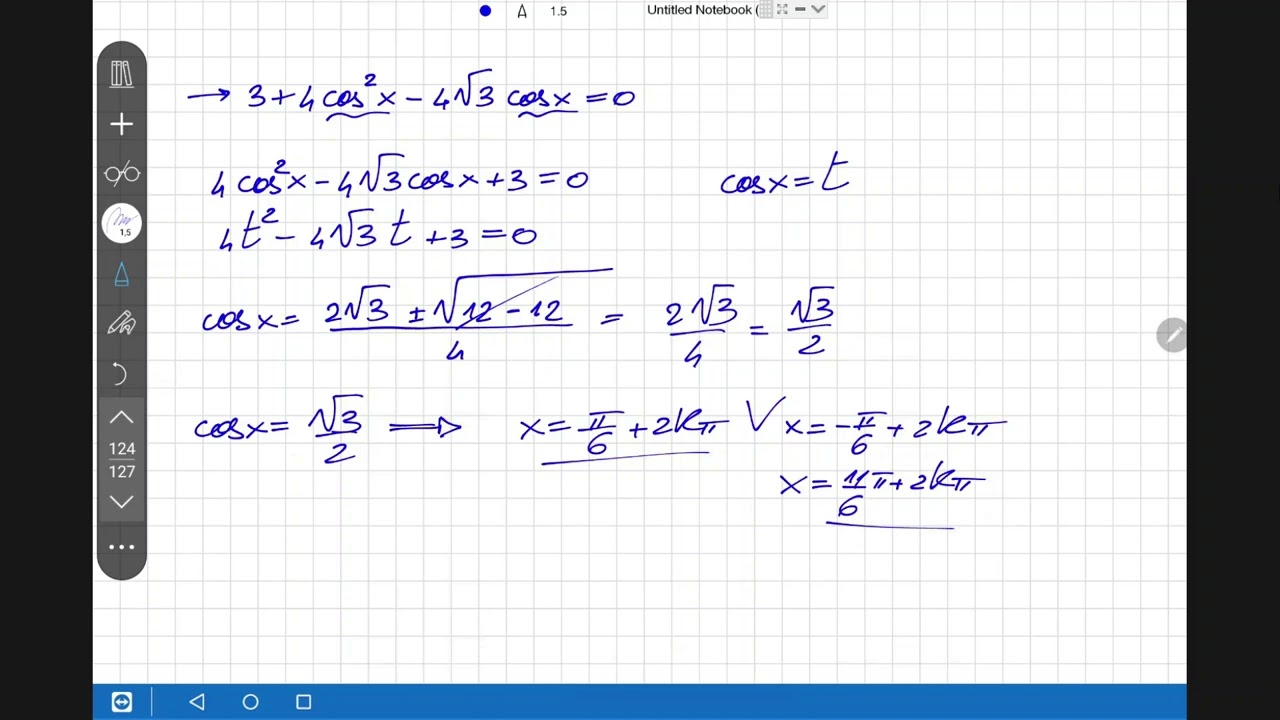 A 1.5 Untitled Notebook (
→ 3+4cos²x − 4√3 cosx = 0
4cos²x − 4√3cosx + 3 = 0 cosx = t
4t² − 4√3 t + 3 = 0
cosx = (2√3 ± √12 − 12)/4 = 2√3/4 = √3/2
cosx = √3/2 ⟹ x = π/6 + 2kπ ∨ x = −π/6 + 2kπ
x = 11/6 π + 2kπ
1,5
124
127